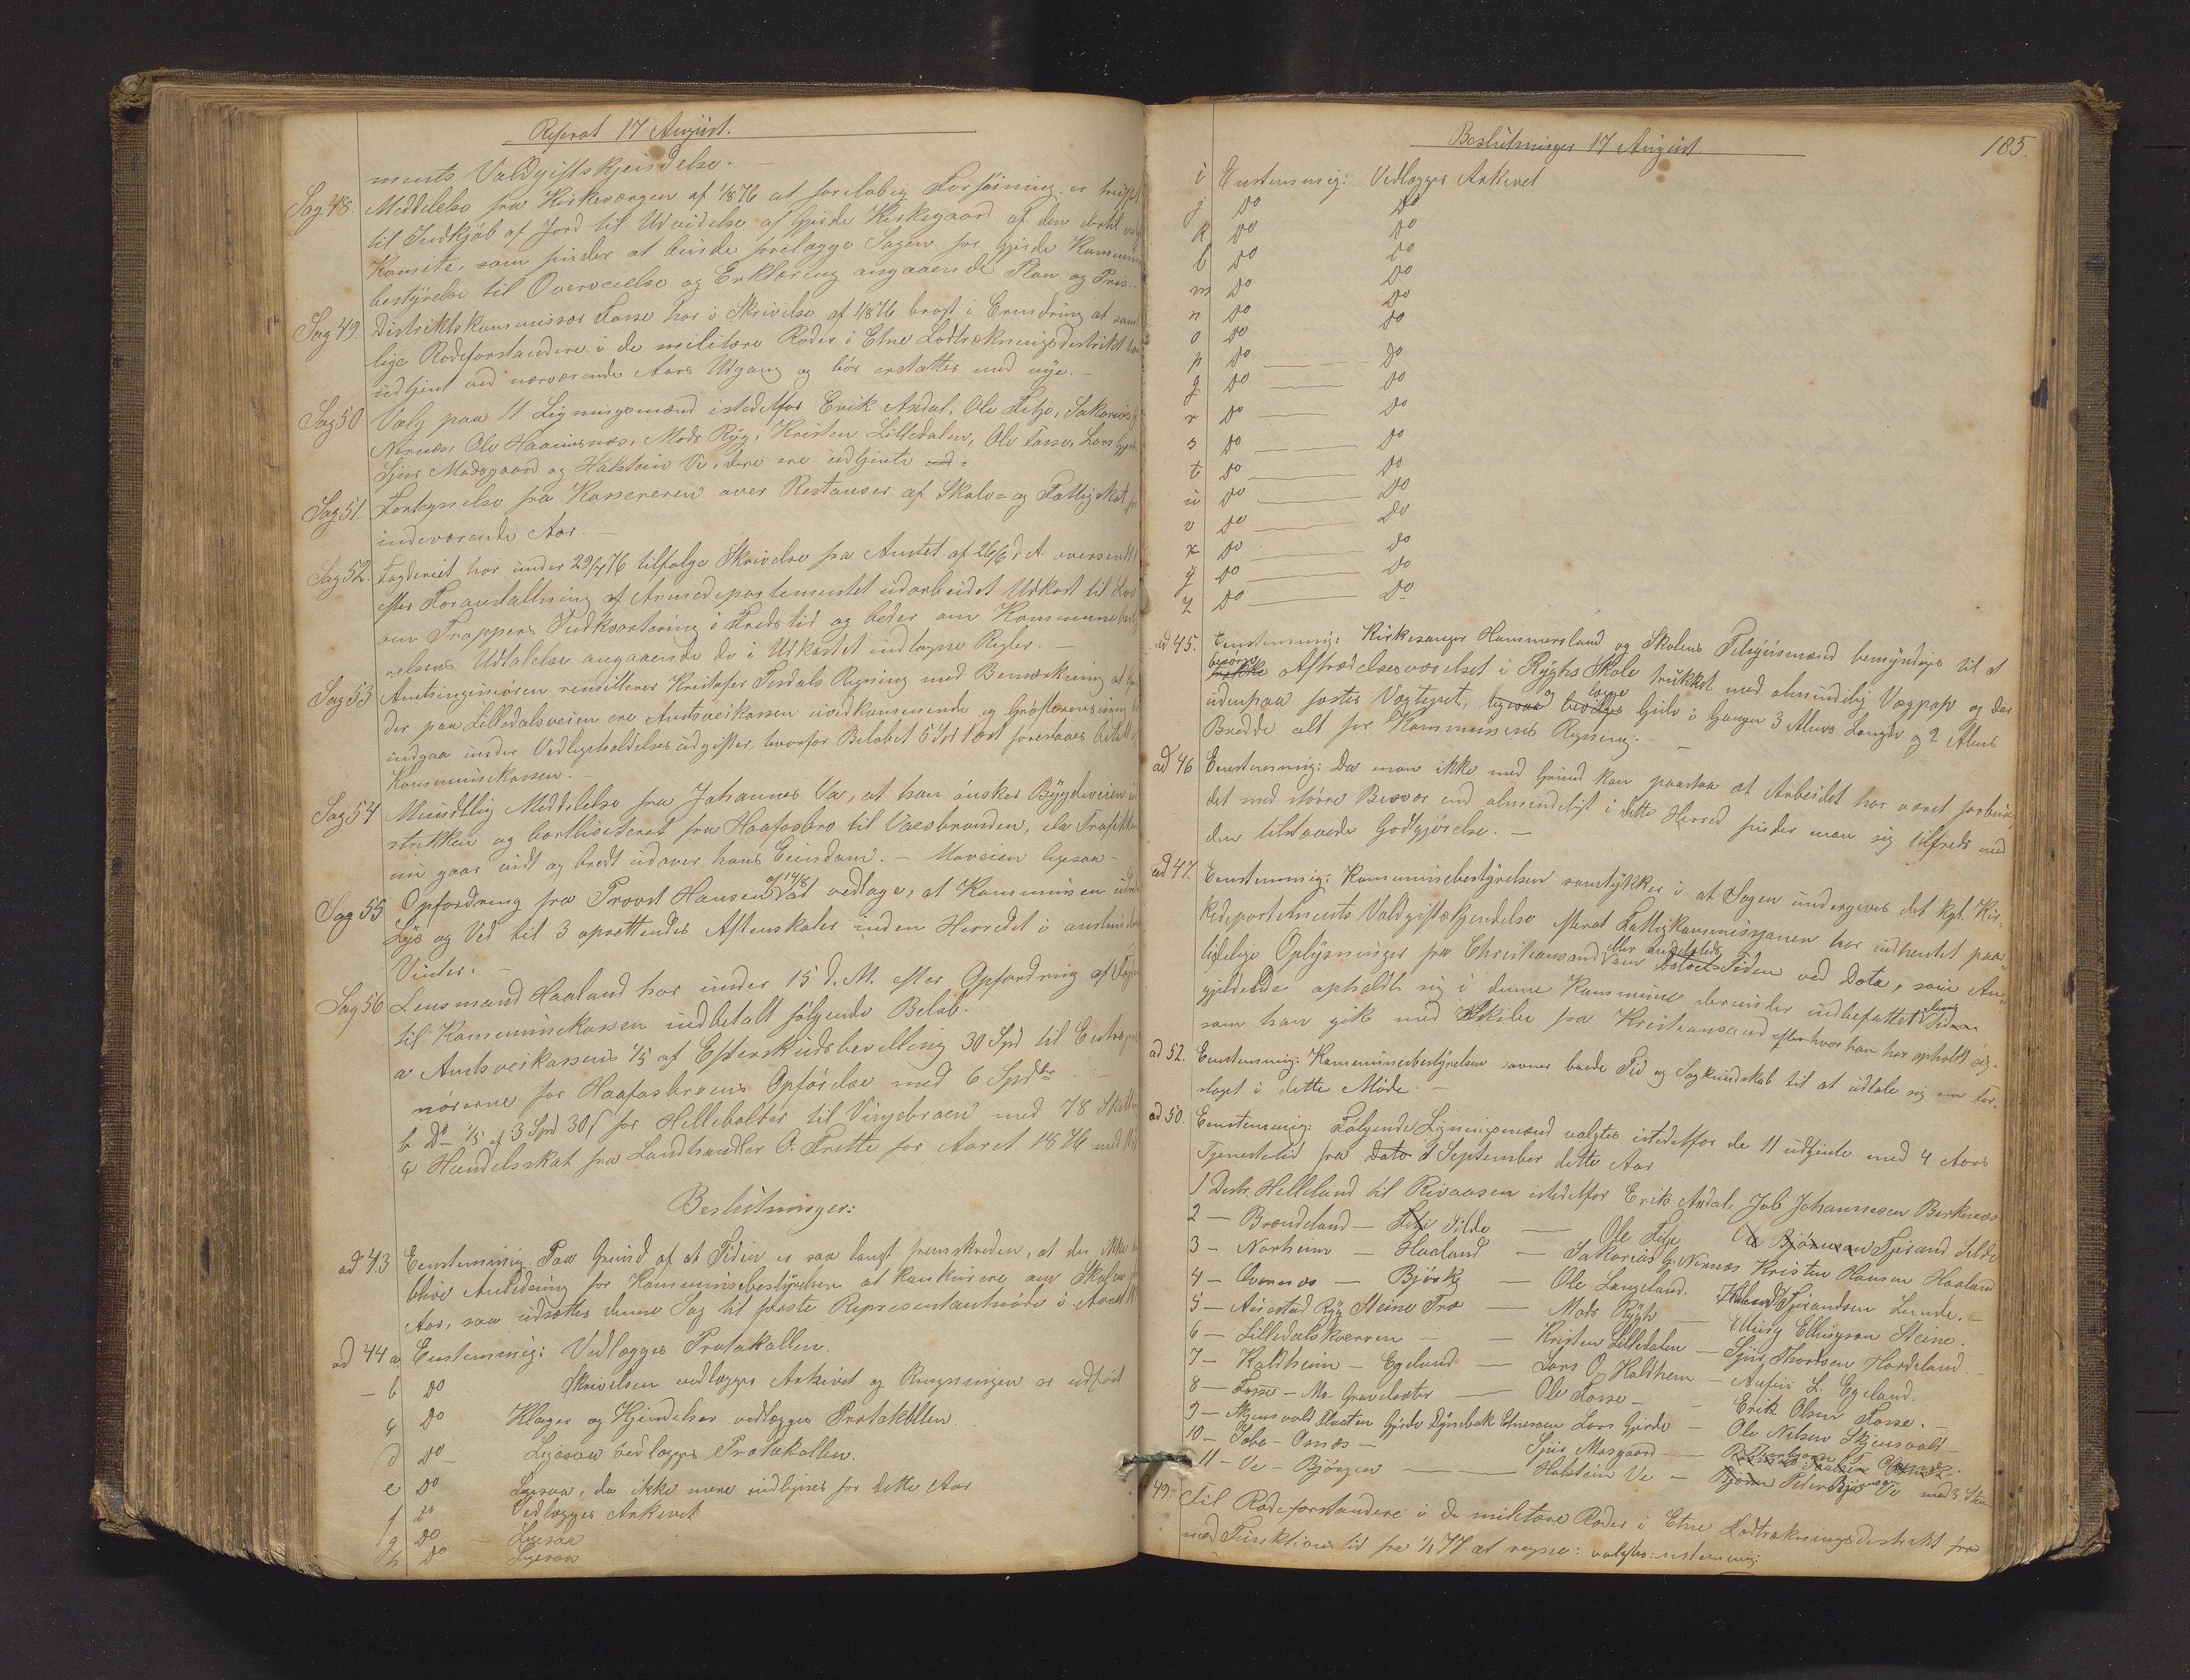 Referat 17 August.
ments Valdgiftskjendelse. –
Sag 48. Meddelelse fra Kirkeværgen af 1/8 76 at foreløbig Forføining er truffet
til Indkjøb af Jord til Udvidelse af Gjerde Kirkegaard af den dertil
Komite, som finder at burde forelægge Sagen for Gjerde Kommune
bestyrelse til Overveielse og Erklæring angaaende Plan og Pris. –
Sag 49. Distriktskommissær Fosse har i Skrivelse af 1/8 76 bragt i Erindring at sam
lige Rodeforstandere i de militære Roder i Etne Lodtrækningsdistrikt
udtjent ved nærværende Aars Udgang og bør erstattes med nye. –
Sag 50 Valg paa 11 Ligningsmænd istedetfor Erik Ardal, Ole Litje, Sakarias
Nernæs, Ole Haaeimsnæs, Mads Ryg, Kristen Lilledalen, Ole Fosse, Lars Gjerde
Sjur Madsgaard og Halstein Ve, dere ere udtjente
Sag 51. Fortegnelse fra Kassereren over Restanser af Skole- og Fattigskat for
indeværende Aar. –
Sag 52. Fogderiet har under 29/7 76 tilfølge Skrivelse fra Amtet af 26/6 d. A. oversendt
efter Foranstaltning af Armedepartementet udarbeidet Udkast til Lov
om Troppers Indkvartering i Fredstid og beder om Kommunebesty
relsens Udtalelse angaaende de i Udkastet indtagne Regler. –
Sag 53 Amtsingeniøren remitterer Kristofer Tesdals Regning med Bemærkning at
der paa Lilledalsveien ere Amtsveikassen uvedkommende og Grøfterensning
indgaa under Vedligeholdelsesudgifter, hvorfor Beløbet 5 Spd 1 ort foreslaaes betalt af
Kommunekassen. –
Sag 54 Mundtlig Meddelelse fra Johannes Væ, at han ønsker Bygdeveien
stukken og bortlisiteret fra Haafosbro til Vaesbranden, da Trafikken
nu gaar vidt og bredt udover hans Eiendom. – Moveien ligesaa –
Sag 55 Opfordring fra Provst Hansen af 14/8 at vedtage, at Kommunen
Lys og Ved til 3 oprettendes Aftenskoler inden Herredet i anstundende
Vinter. –
Sag 56 Lensmand Haaland har under 15 d. M. efter Opfordring af
til Kommunekassen indbetalt følgende Beløb.
a Amtsveikassens 1/5 af Efterskudsbevilling 30 Spd til Entrepre
nørerne for Haafosbroens Opførelse med 6 Spdlr. –
b Do 1/5 af 3 Spd 30 s for Hellebolter til Vinjebroen med 78 Skilling
c Handelsskat fra Landhandler O. Frette for Aaret 1876 med
Beslutninger:
ad 43 Eenstemmig. Paa Grund af at Tiden er saa langt fremskreden, at der ikke
blive Anledning for Kommunebestyrelsen at konkurere om Skolen
Aar, saa udsættes denne Sag til første Representantmøde i Aaret
ad 44 a Eenstemmig: Vedlægges Protokollen.
– b Do Skrivelsen vedlægges Arkivet og Rengningen er udført
c Do Klager og Kjendelser vedlægges Protokollen
d Do – Ligesaa vedlægges Protokollen.
e Do Ligesaa, da ikke mere indlignes for dette Aar
f Do Vedlægges Arkivet
g Do Ligesaa
h Do Ligesaa
Beslutninger 17 August. 185.
i Enstemmig: Vedlægges Arkivet
j Do Do
k Do Do
l Do Do
m Do Do
n Do Do
o Do Do
p Do Do
q Do Do
r Do Do
s Do Do
t Do Do
u Do Do
v Do Do
x Do Do
y Do Do
z Do Do
ad 45. Eenstemmig: Kirkesanger Hammersland og Skolens Tilsynsmænd bemyndiges til at
besørge Aftrædelsesværelset i Ryghs Skole trukket med almindelig Vægpap og der
udenpaa fæstes Vægtepet, ligesaa og bevilges lægge Gulv i Gangen 3 Alens Længde og 2 Alens
Bredde alt for Kommunens Regning. –
ad 46 Eenstemmig: Da man ikke med Grund kan paastaa at Arbeidet har været forbun
det med større Besvær end almindeligt i dette Herred finder man sig tilfreds med
den tilstaaede Godtgjørelse. –
ad 47. Eenstemmig: Kommunebestyrelsen samtykker i at Sagen undergives det kgl. Kir-
kedepartements Voldgiftskjendelse efterat Fattigkommissionen har indhentet paa-
lidelige Oplysninger fra Christiansand eller andetsteds om Tiden ved Dato, som An-
gjeldende opholdt sig i denne Kommune derunder indbefattet
som han gik med Skibe fra Kristiansand efter hvor han har opholdt sig.
ad 52. Eenstemmig: Kommunebestyrelsen savner baade Tid og Sagkundskab til at udtale sig om For-
slaget i dette Møde. –
ad 50. Eenstemmig: Følgende Ligningsmænd valgtes istedetfor de 11 udtjente med 4 Aars
Tjenestetid fra Dato 1 September dette Aar
1 Distr. Helleland til Rivaasen istedetfor Erik Ardal, Job Johannessen Berknæs
2 – Brændeland – Silde – Ole Litje Tjerand Silde
3 – Norheim – Haaland – Sakarias G. Nernæs Kristen Hansen Haaland
4 – Osnæs – Bjørk – Ole Langeland. Tjerandsen Lunde. –
5 – Austad Ryg Steine Trø – Mads Rygh – Elling Ellingson Steine.
6 – Lilledalskverven – – Kristen Lilledalen – Sjur Thordsen Hordeland.
7 – Kaldheim – Egeland – Lars O. Kaldheim – Anfin L. Egeland.
8 – Fosse – Mo Gravelsæter – Ole Fosse – – Erik Olsen Fosse. –
9 – Skjensvold Flaaten Gjerde Dynebæk Etnesøen Lars Gjerde – Ole Nilsen Skjensvold –
10 – Tobø – Osnæs – Sjur Masgaard –
11 – Ve – Bjørgen – Halstein Ve – Ve med 3 Stem
49. Til Rodeforstandere i de militære Roder i Etne Lodtrækningsdistrikt fra
med Funktions tid fra 1/1 77 at regne: valgtes: enstemmig: